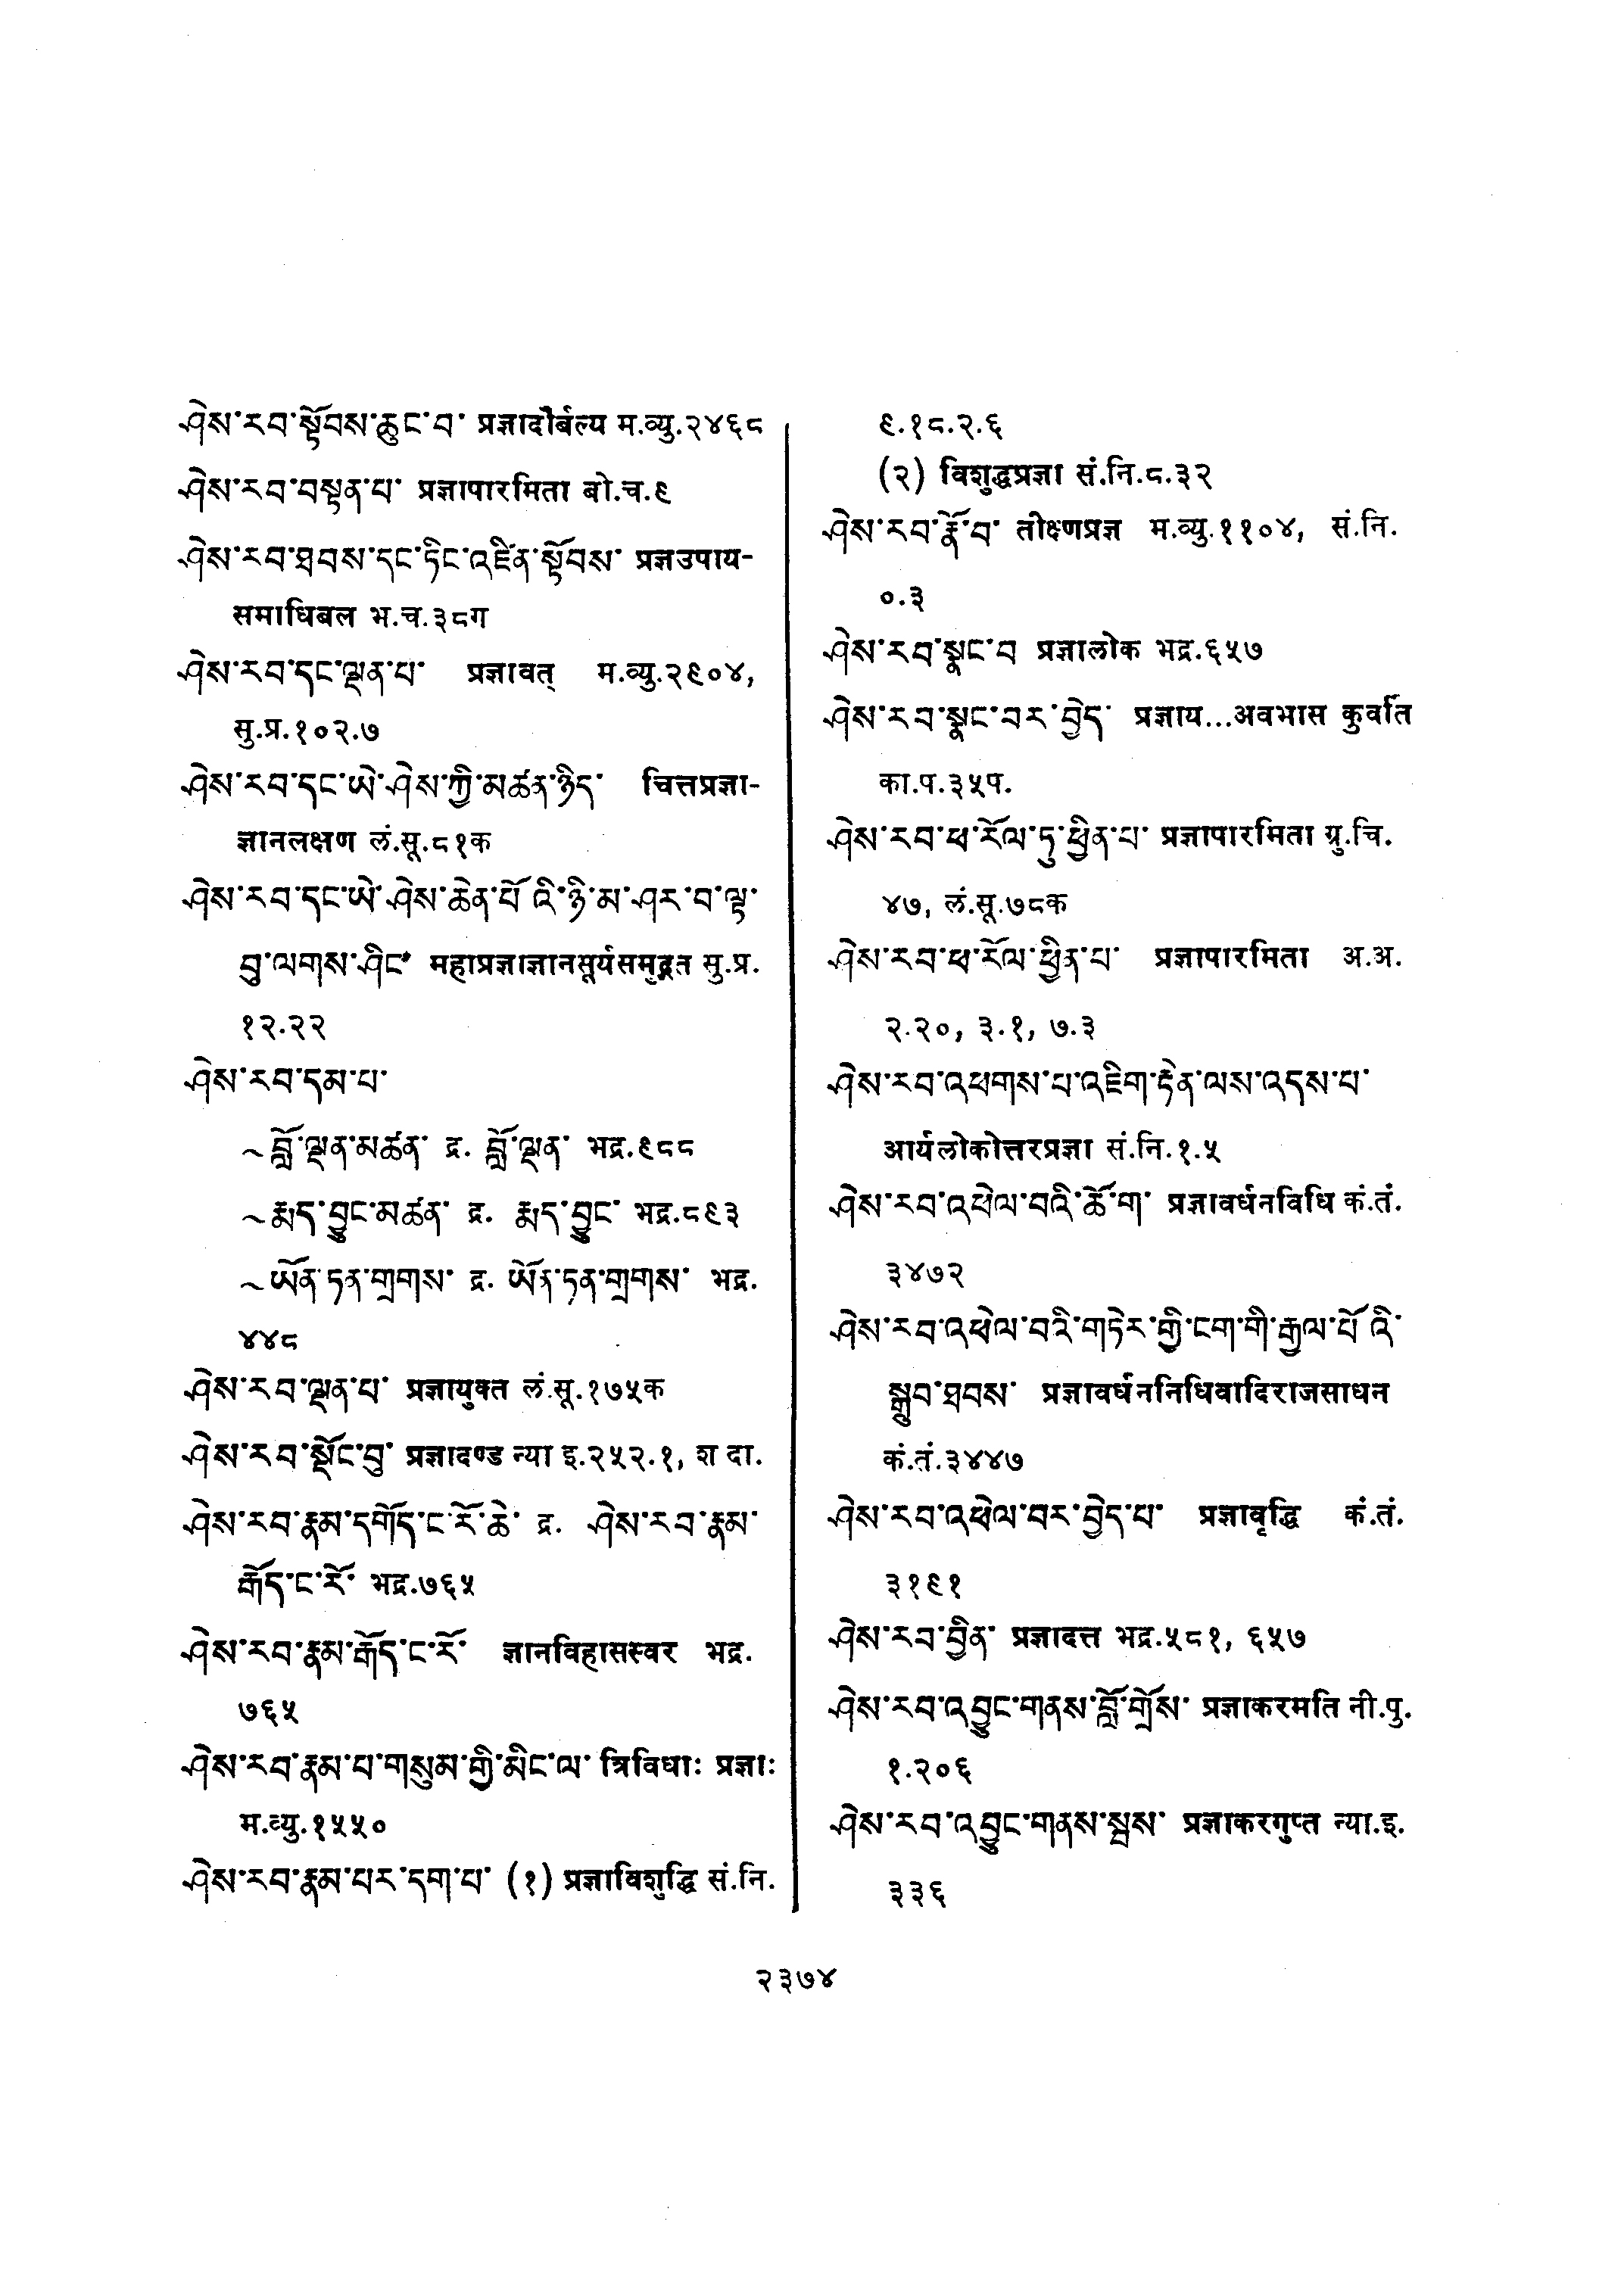 ཤེས་རབ་སྟོབས་ཆུང་བ་ प्रज्ञादौर्बल्य म.व्यु.२४६८
ཤེས་རབ་བསྟན་པ་ प्रज्ञापारमिता बो.च.९
ཤེས་རབ་ཐབས་དང་ཏིང་འཛིན་སྟོབས་ प्रज्ञउपाय-
समाधिबल भ.च.३८ग
ཤེས་རབ་དང་ལྡན་པ་ प्रज्ञावत् म.व्यु.२९०४,
सु.प्र.१०२.७
ཤེས་རབ་དང་ཡེ་ཤེས་ཀྱི་མཚན་ཉིད་ चित्तप्रज्ञा-
ज्ञानलक्षण लं.सू.८१क
ཤེས་རབ་དང་ཡེ་ཤེས་ཆེན་པོ་འི་ཉི་མ་ཤར་བ་ལྟ་
བུ་ལགས་ཤིང་ महाप्रज्ञाज्ञानसूर्यसमुद्गत सु.प्र.
१२.२२
ཤེས་རབ་དམ་པ་
~བློ་ལྡན་མཚན་ द्र. བློ་ལྡན་ भद्र.९८८
~རྨད་བྱུང་མཚན་ द्र. རྨད་བྱུང་ भद्र.८९३
~ཡོན་ཏན་གྲགས་ द्र. ཡོན་ཏན་གྲགས་ भद्र.
४४८
ཤེས་རབ་ལྡན་པ་ प्रज्ञायुक्त लं.सू.१७५क
ཤེས་རབ་སྡོང་བུ་ प्रज्ञादण्ड न्या इ.२५२.१, श दा.
ཤེས་རབ་རྣམ་དགོད་ང་རོ་ཆེ་ द्र. ཤེས་རབ་རྣམ་
རྒོད་ང་རོ་ भद्र.७६५
ཤེས་རབ་རྣམ་རྒོད་ང་རོ་ ज्ञानविहासस्वर भद्र.
७६५
ཤེས་རབ་རྣམ་པ་གསུམ་གྱི་མིང་ལ་ त्रिविधाः प्रज्ञाः
म.व्यु.१५५०
ཤེས་རབ་རྣམ་པར་དག་པ་ (१) प्रज्ञाविशुद्धि सं.नि.
९.१८.२.६
(२) विशुद्धप्रज्ञा सं.नि.८.३२
ཤེས་རབ་རྣོ་བ་ तीक्ष्णप्रज्ञ म.व्यु.११०४, सं.नि.
०.३
ཤེས་རབ་སྣང་བ प्रज्ञालोक भद्र.६५७
ཤེས་རབ་སྣང་བར་བྱེད་ प्रज्ञाय...अवभास कुर्वति
का.प.३५प.
ཤེས་རབ་ཕ་རོལ་ཏུ་ཕྱིན་པ་ प्रज्ञापारमिता ग्रु.चि.
४७, लं.सू.७८क
ཤེས་རབ་ཕ་རོལ་ཕྱིན་པ་ प्रज्ञापारमिता अ.अ.
२.२०, ३.१, ७.३
ཤེས་རབ་འཕགས་པ་འཇིག་རྟེན་ལས་འདས་པ་
आर्यलोकोत्तरप्रज्ञा सं.नि.१.५
ཤེས་རབ་འཕེལ་བའི་ཆོ་ག་ प्रज्ञावर्धनविधि कं.तं.
३४७२
ཤེས་རབ་འཕེལ་བའི་གཏེར་གྱི་ངག་གི་རྒྱལ་པོ་འི་
སྒྲུབ་ཐབས་ प्रज्ञावर्धननिधिवादिराजसाधन
कं.तं.३४४७
ཤེས་རབ་འཕེལ་བར་བྱེད་པ་ प्रज्ञावृद्धि कं.तं.
३१९१
ཤེས་རབ་བྱིན་ प्रज्ञादत्त भद्र.५८१, ६५७
ཤེས་རབ་འབྱུང་གནས་བློ་གྲོས་ प्रज्ञाकरमति नी.पु.
१.२०६
ཤེས་རབ་འབྱུང་གནས་སྦས་ प्रज्ञाकरगुप्त न्या.इ.
३३६
२३७४